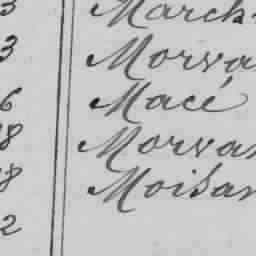 3 March
3 Morva
6 Macé
8 Morvan
8 Moisan
2